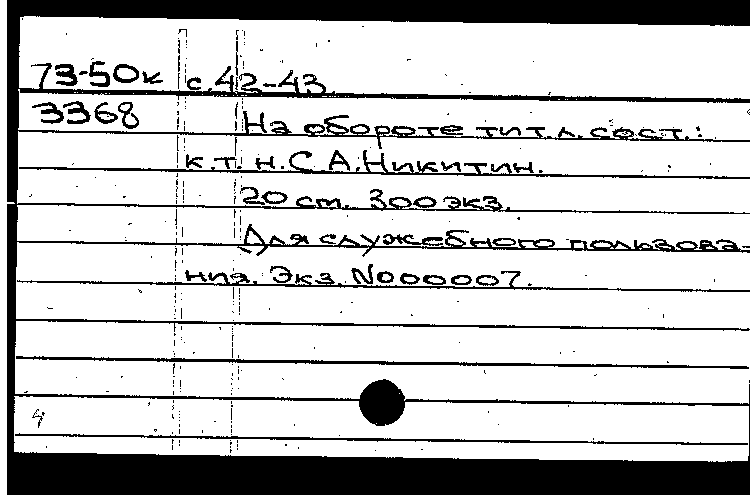 73-50к с.42-43.
3368 На обороте тит.л. сост.:
к.т.н. С.А.Никитин.
20 см. 300 экз.
Для служебного пользова-
ния. Экз. №000007.
4